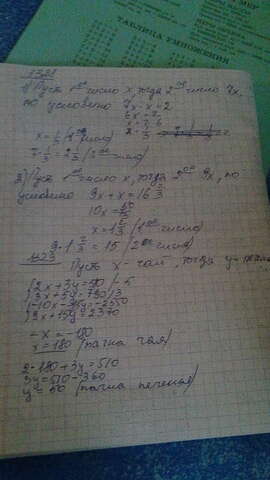 ТАБЛИЦА УМНОЖЕНИЯ
1) Пусть 1ое число x, тогда 2ое число 7x,
по условию 7x-x=2
6x=2
x=2:6
x=1/3 (1ое число)
7·1/3=2 1/3 (2ое число)
2) Пусть 1ое число x, тогда 2ое 9x, по
условию 9x+x=16 2/3
x=1 2/3 (1ое число)
9·1 2/3=15 (2ое число)
Пусть x-чай, тогда y-печенье
2x+3y=510 |-5
3x+5y=790 |3
-10x-15y=-2550
9x+15y=2370
-x=-180
x=180 (пачка чая)
2·180+3y=510
3y=510-360
y=50 (пачка печенья)